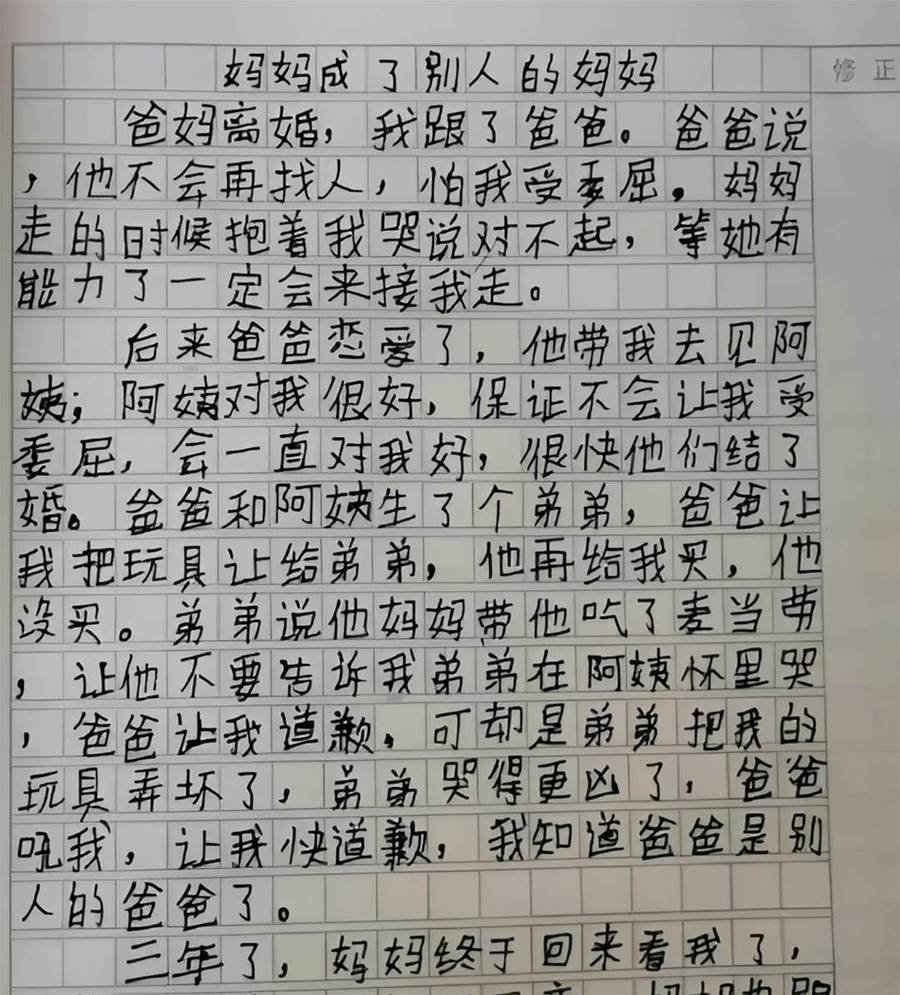 妈妈成了别人的妈妈
修正
爸妈离婚，我跟了爸爸。爸爸说
，他不会再找人，怕我受委屈。妈妈
走的时候抱着我哭说对不起，等她有
能力了一定会来接我走。
后来爸爸恋爱了，他带我去见阿
姨；阿姨对我很好，保证不会让我受
委屈，会一直对我好，很快他们结了
婚。爸爸和阿姨生了个弟弟，爸爸让
我把玩具让给弟弟，他再给我买，他
没买。弟弟说他妈妈带他吃了麦当劳
，让他不要告诉我弟弟在阿姨怀里哭
，爸爸让我道歉，可却是弟弟把我的
玩具弄坏了，弟弟哭得更凶了，爸爸
吼我，让我快道歉，我知道爸爸是别
人的爸爸了。
三年了，妈妈终于回来看我了，